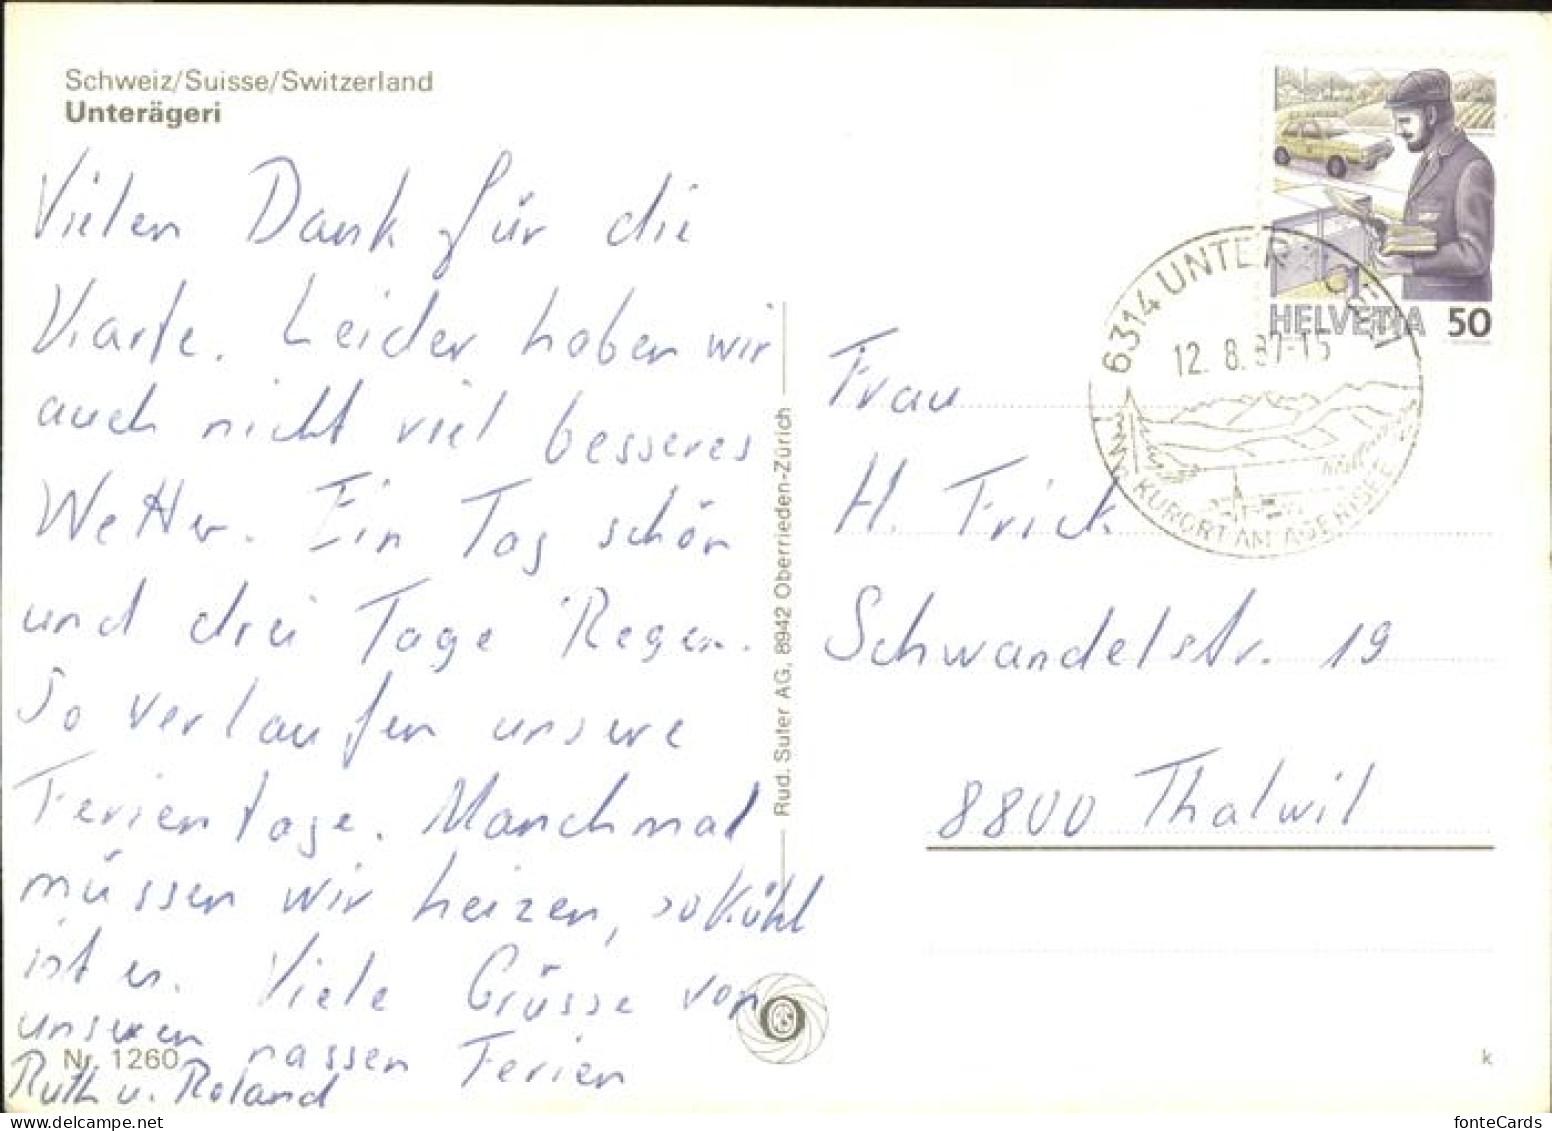 Schweiz/Suisse/Switzerland
Unterägeri
Vielen Dank für die
Karte. Leider haben wir
auch nicht viel besseres
Wetter. Ein Tag schön
und drei Tage Regen.
So verlaufen unsere
Ferientage. Manchmal
müssen wir heizen, so kühl
ist es. Viele Grüsse von
unseren nassen Ferien
Ruth u. Roland
Nr. 1260
Rud. Suter AG, 8942 Oberrieden-Zürich
HELVETIA 50
6314 UNTER
12. 8. 87-15
KURORT AM ÄGERISEE
Frau
H. Frick
Schwandelstr. 19
8800 Thalwil
k
fonteCards